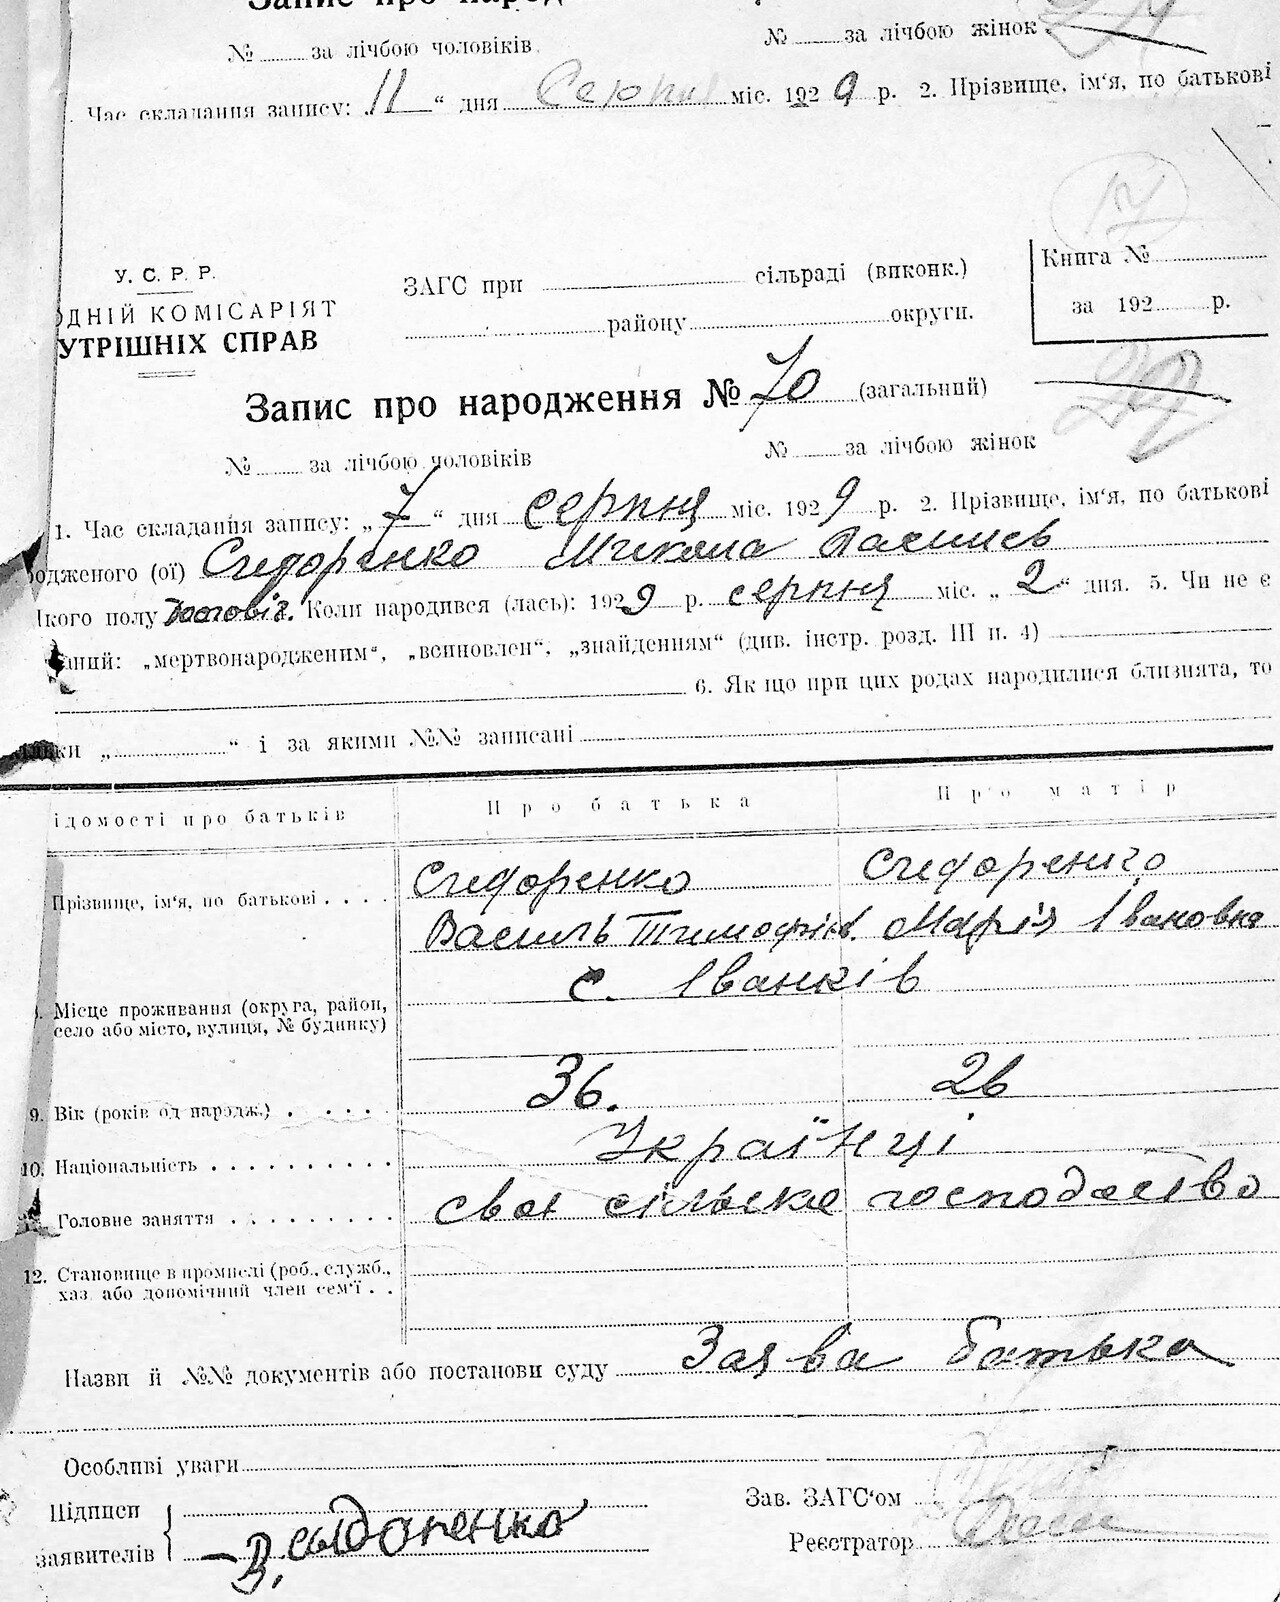 Запис про народ
№ за лічбою чоловіків. № за лічбою жінок
Час складання запису: 11 “ дня Серпня міс. 1929 р. 2. Прізвище, ім‘я, по батькові
17
У. С. Р. Р.
ОДНІЙ КОМІСАРІЯТ
УТРІШНІХ СПРАВ
ЗАГС при сільраді (виконк.)
району округи.
Книга №
за 192 р.
Запис про народження № 70 (загальний)
№ за лічбою чоловіків № за лічбою жінок
1. Час складання запису: „ 7 “ дня серпня міс. 1929 р. 2. Прізвище, ім‘я, по батькові
одженого (ої) Сидоренко Микола Васильев
кого полу Чоловіч. Коли народився (лась): 1929 р. серпня міс. „ 2 “ дня. 5. Чи не є
аний: „мертвонародженим“, „всиновлен“, „знайденням“ (див. інстр. розд. III п. 4)
6. Якщо при цих родах народилися близнята, то
„ “ і за якими №№ записані
ідомості про батьків Про батька Про матір
Прізвище, ім‘я, по батькові . . . . Сидоренко Сидоренко
Василь Тимофіїв. Марія Івановна
Місце проживання (округа, район, село або місто, вулиця, № будинку) с. Іванків
9. Вік (років од народж.) . . . . 36. 26
10. Національність . . . . . . . . . . Українці
Головне заняття . . . . . . . . . своє сільське господаство
12. Становище в промислі (роб., служб.,
хаз. або допомічний член сем‘ї . .
Назви й №№ документів або постанови суду Заява батька
Особливі уваги
Підписи
заявителів В. Сыдоренко
Зав. ЗАГС‘ом
Реєстратор